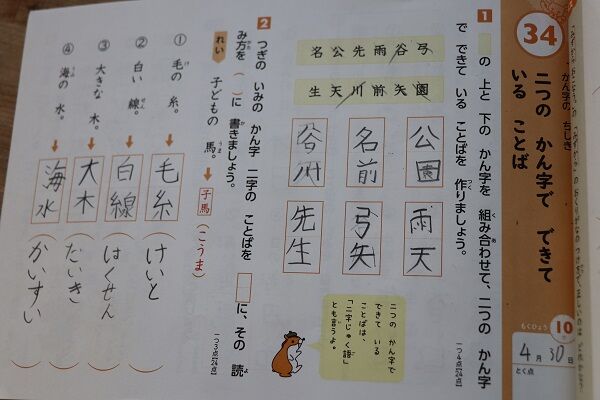 34
かん字の ちしき
二つの かん字で できて
いる ことば
もくひょう
10
4月30日
とく点
1
の 上と 下の かん字を 組み合わせて、二つの かん字
で できて いる ことばを 作りましょう。
一つ4点【24点】
弓 谷 雨 先 公 名
園 矢 前 川 天 生
公園
雨天
名前
弓矢
谷川
先生
二つの かん字で
できて いる
ことばは、
「二字じゅく語」
とも言うよ。
2
つぎの いみの かん字 二字の ことばを に、その 読
み方を ( )に 書きましょう。
一つ3点【24点】
れい
子どもの 馬。
子馬
(こうま)
① 毛の 糸。
毛糸
(けいと)
② 白い 線。
白線
(はくせん)
③ 大きな 木。
大木
(たいき)
④ 海の 水。
海水
(かいすい)